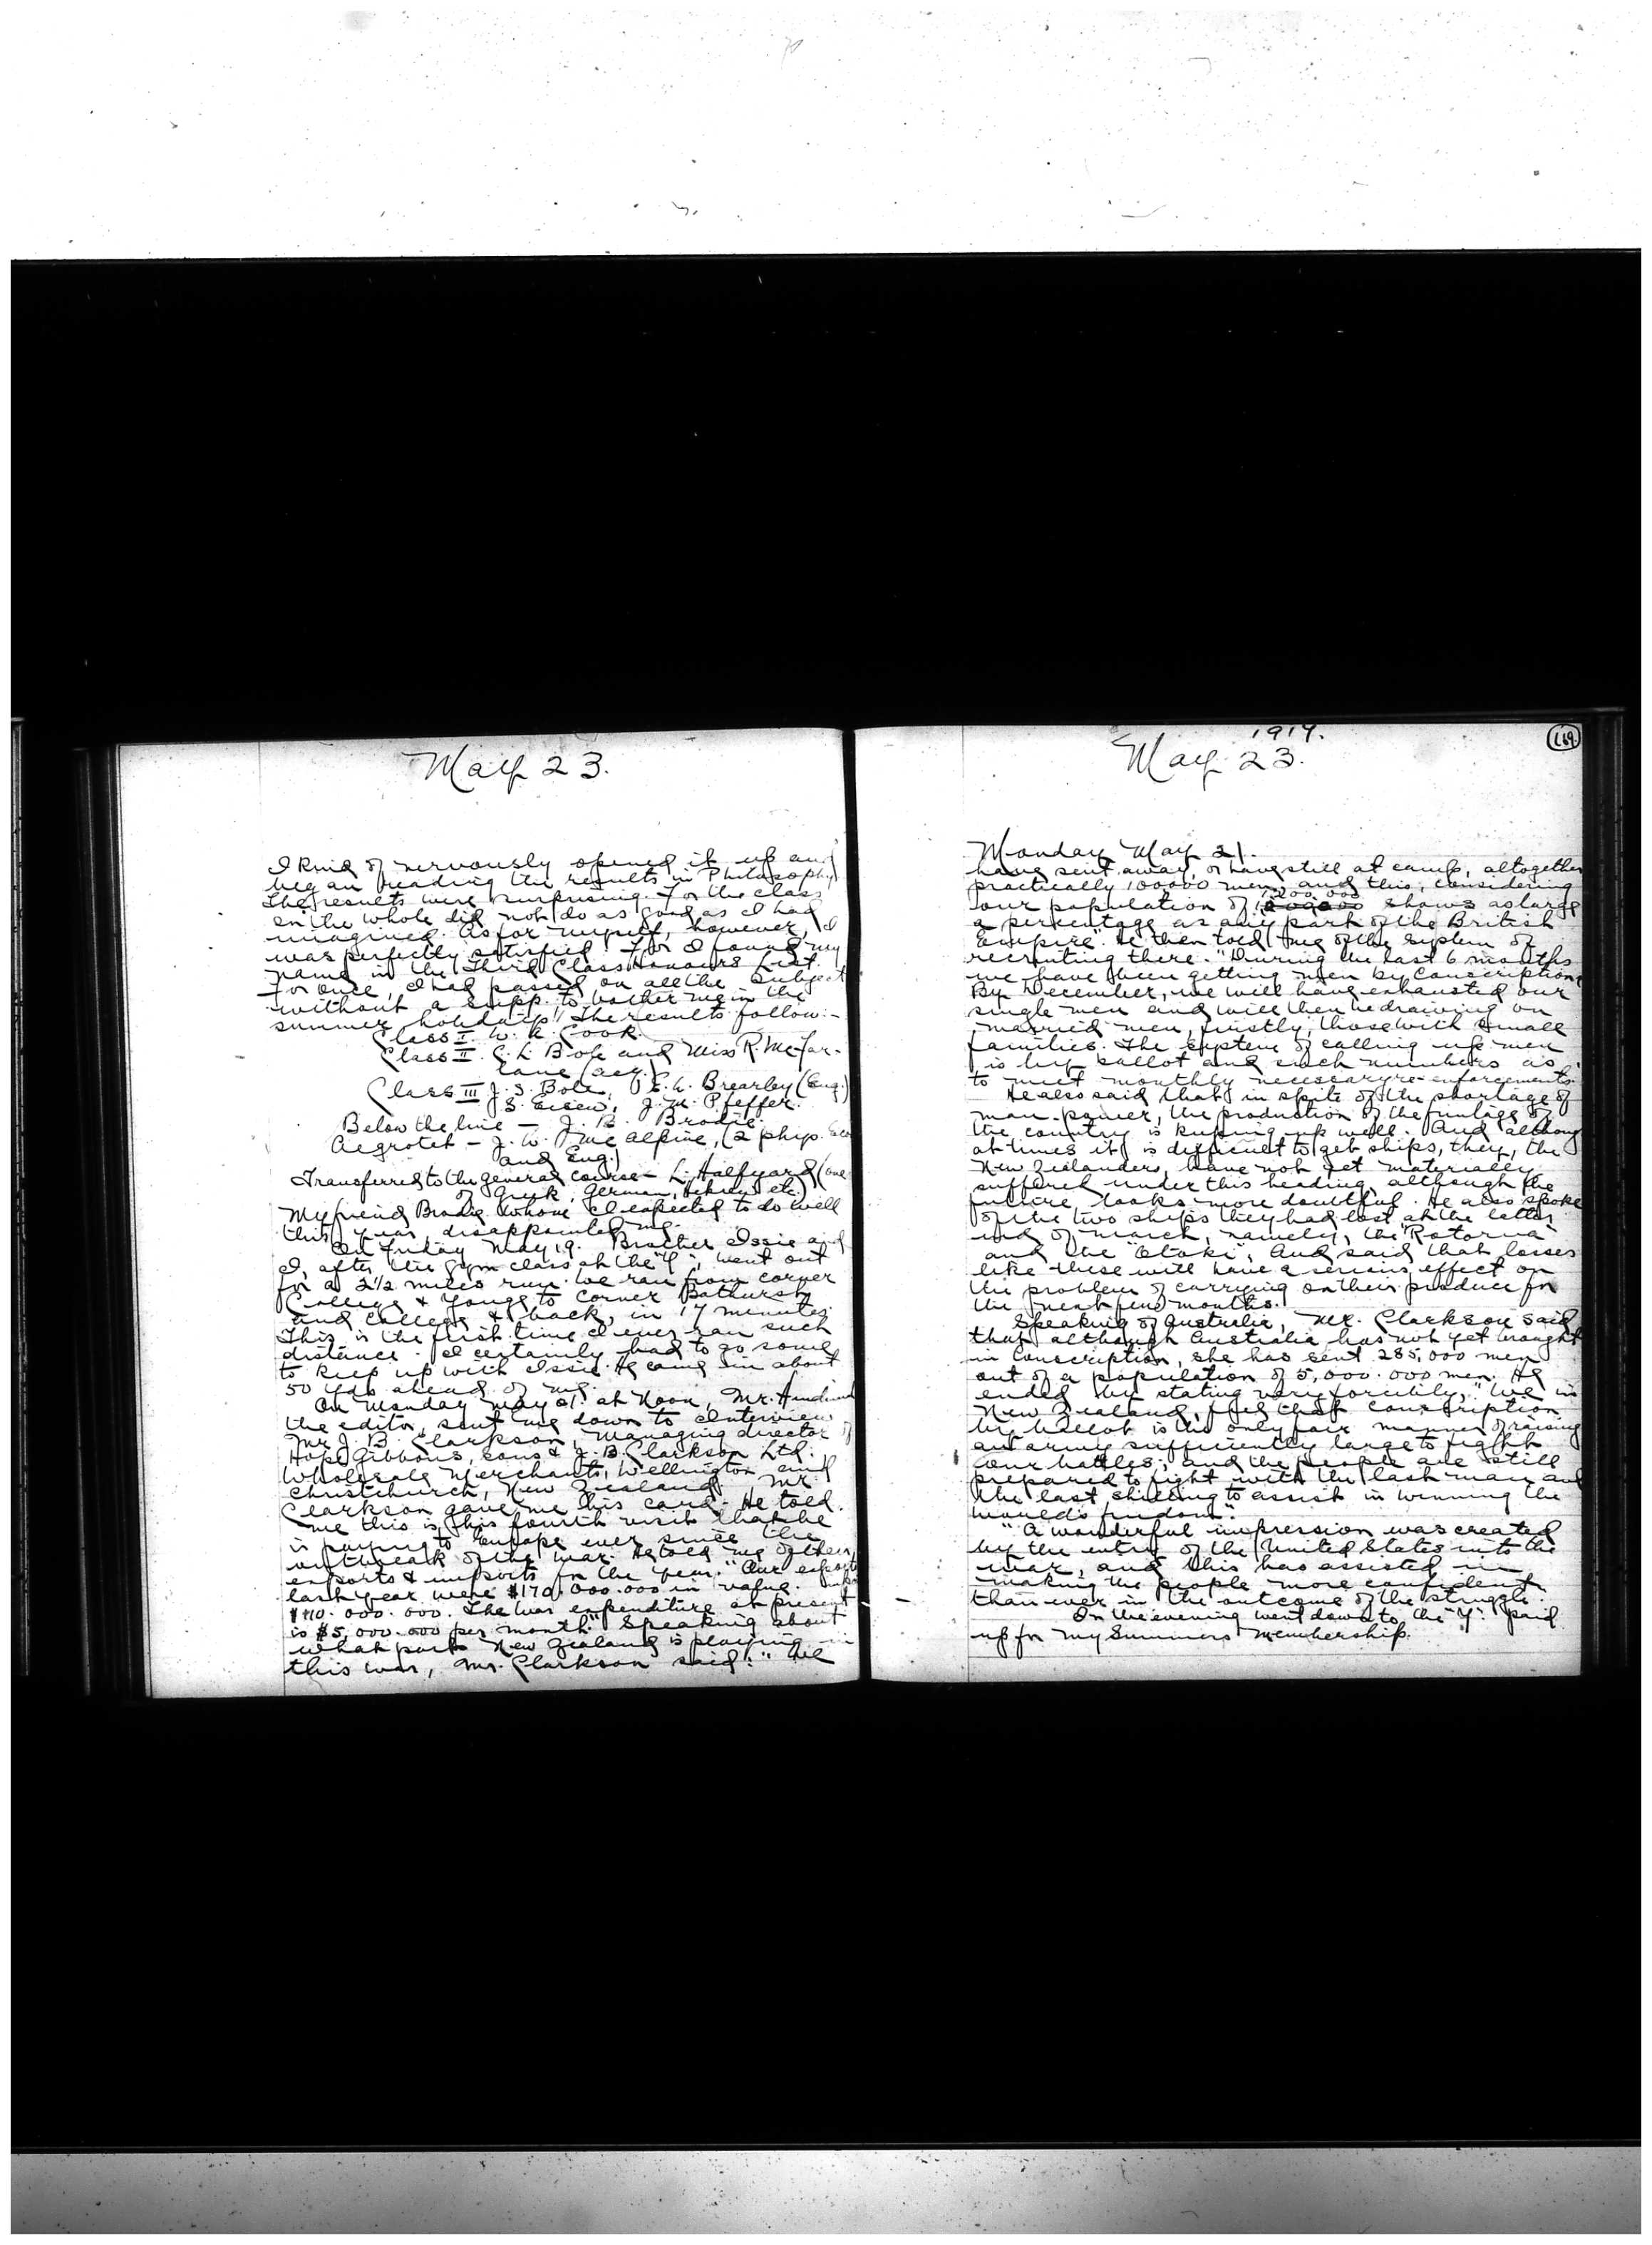 May 23.
I kind of nervously opened it up and
began reading the results in Philosophy.
The results were surprising. For the class
on the whole did not do as good as I had
imagined. As for myself, however, I
was perfectly satisfied! For I found my
name in the Third Class Honours List.
For once, I had passed on all the subjects
without a supp. to bother me in the
summer holidays!! The results follow:-
Class I. W. R. Cook.
Class II. C. L. Bole and Miss R. McFar-
lane (aeg.)
Class III J. S. Bole, E. W. Brearley (Eng.)
S. Eisen, J. M. Pfeffer.
Below the line - J. B. Brodie.
Aegrotat - J. W. McAlpine, (2 phip.
and Eng.)
Transferred to the general course - L. Halfyard (one
of Greek, German, Hebrew etc)
My friend Brodie whom I expected to do well
this year, disappointed me.
On Friday May 19. Brother Issie and
I, after the gym class at the "Y", went out
for a 2½ miles run. We ran from corner
College & Yonge to corner Bathurst
and College & back, in 17 minutes.
This is the first time I ever ran such
distance. I certainly had to go some
to keep up with Issie. He came in about
50 yds ahead of me.
On Monday May 21. at Noon, Mr.
the editor, sent me down to interview
Mr J. B. Clarkson, Managing director of
Hope Gibbons, Sons & J. B. Clarkson Ltd.
Wholesale Merchants, Wellington and
Christchurch, New Zealand. Mr.
Clarkson gave me his card. He told
me this is his fourth visit that he
is paying to Europe ever since the
outbreak of the war. He told me of their
exports & imports for the year. "Our exports
last year were $170.000.000 in value.
$110.000.000. The war expenditure at present
is $5,000.000 per month." Speaking about
what part New Zealand is playing in
this war, Mr. Clarkson said: "We
1917.
169.
May 23.
Monday May 21.
have sent away, or have still at camp, altogether
practically 100000 men, and this, considering
200 000
our population of 1, shows as large
a percentage as any part of the British
Empire". He then told me of the system of
recruiting there. "During the last 6 months
we have been getting men by conscription.
By December, we will have exhausted our
single men and will then be drawing on
married men, firstly, those with small
families. The system of calling up men
is by ballot and such numbers as
to meet monthly necessary re-enforcements."
He also said that in spite of the shortage of
man-power, the production of the
the country is keeping up well. And although
at times it is difficult to get ships, they, the
New Zealanders, have not yet materially
suffered under this heading, although the
future looks more doubtful. He also spoke
of the two ships they had lost at the latter
end of March, namely, the "Rotorua"
and the "Otaki", and said that losses
like these will have a serious effect on
the problem of carrying on their produce for
the next few months.
Speaking of Australia, Mr. Clarkson said
that although Australia has not yet brought
in Conscription, she has sent 285,000 men
out of a population of 5,000.000 men. He
ended by stating very forcibly, "We in
New Zealand, feel that conscription
by ballot is the only fair manner of raising
an army sufficiently large to fight
our battles; and the people are still
prepared to fight with the last man and
the last shilling to assist in winning the
world's freedom".
"A wonderful impression was created
by the entry of the United States into the
war, and this has assisted in
making the people more confident
than ever in the outcome of the struggle."
In the evening went down to the "Y". Paid
up for my Summers membership.